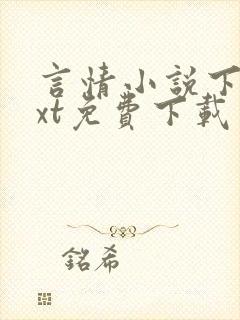 言情小說下
xt免費下載
銘希